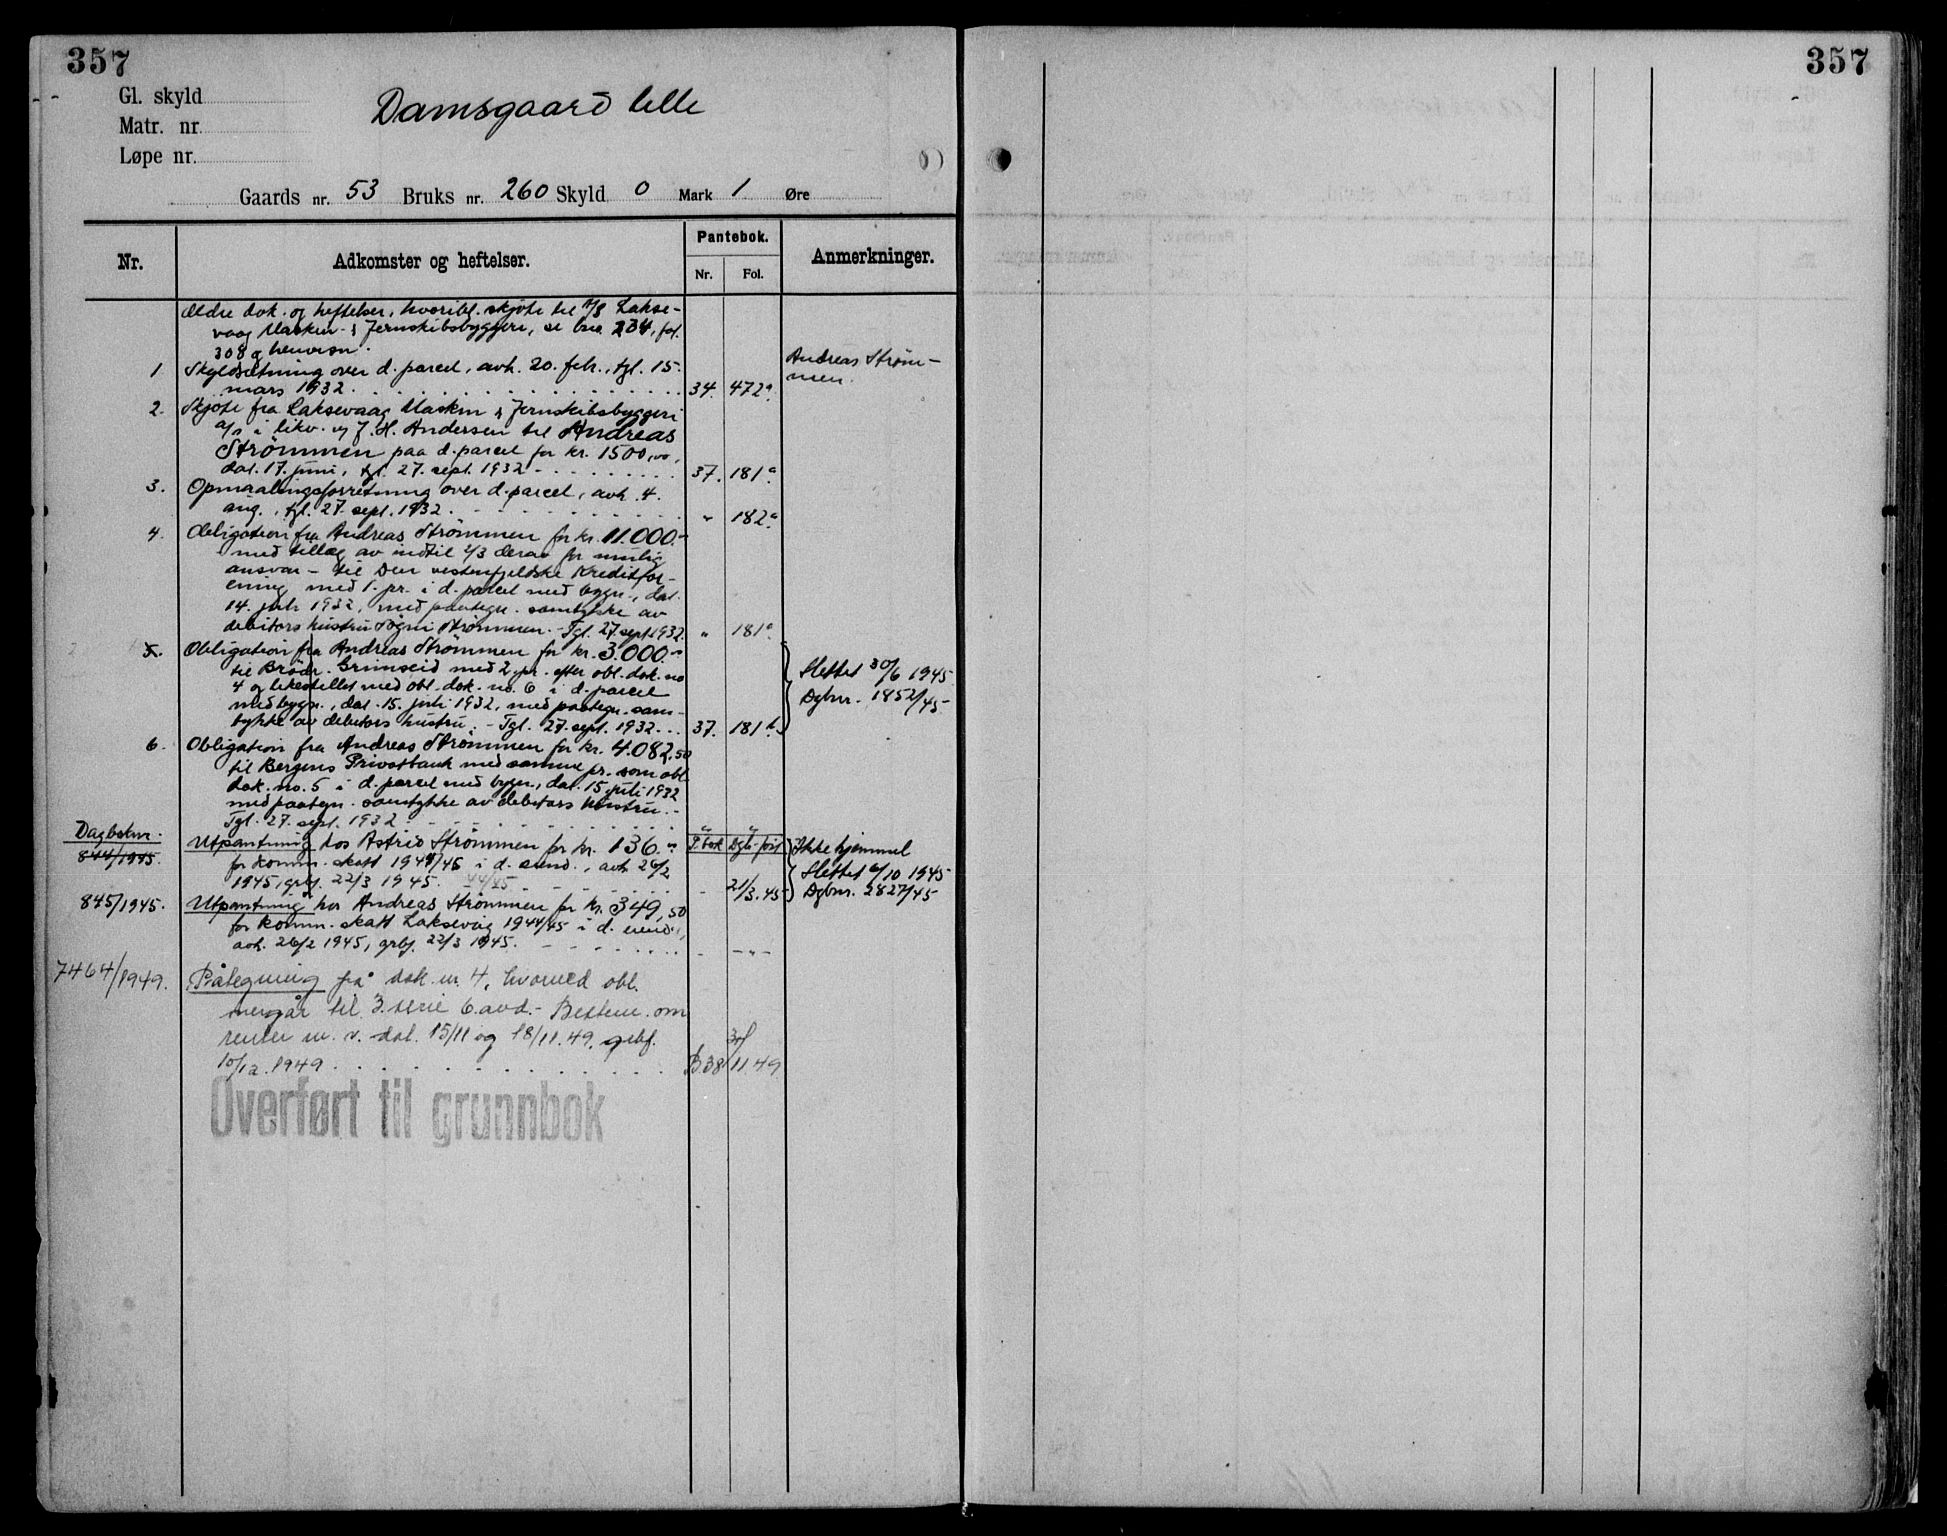 357
357
Gl. skyld
Matr. nr.
Løpe nr.
Damsgaard lille
Gaards nr. 53 Bruks nr. 260 Skyld 0 Mark 1 Øre
Nr.
Adkomster og heftelser.
Pantebok.
Nr. Fol.
Anmerkninger.
Ældre dok. og heftelser, hvoribl. skjøte til A/S Lakse-
vaag Maskin- & Jernskibsbyggeri, se bno 234, fol.
308 og henvisn.
1 Skyldsætning over d. parcel, avh. 20. febr., tgl. 15.
mars 1932. 34. 472a.
Andreas Strøm-
men.
2. Skjøte fra Laksevaag Maskin & Jernskibsbyggeri
a/s i likv. v/ J. H. Andersen til Andreas
Strømmen paa d. parcel for kr. 1500,00,
dat. 17. juni, tgl. 27. sept. 1932 37. 181a.
3. Opmaalingsforretning over d. parcel, avh. 4.
aug., tgl. 27. sept. 1932. " 182a.
4. Obligation fra Andreas Strømmen for kr. 11.000.-
med tillæg av indtil 2/3 derav for mulig
ansvar - til Den vestenfjeldske Kreditfor-
ening med 1. pr. i d. parcel med bygn., dat.
14. juli 1932, med paategn. samtykke av
debitors hustru Sogni Strømmen. - Tgl. 27. sept. 1932. " 181a.
5. Obligation fra Andreas Strømmen for kr. 3.000.-
til Brødr. Grimseid med 2. pr. efter obl. dok. no
4 og likestillet med obl. dok. no. 6 i d. parcel
med bygn., dat. 15. juli 1932, med paategn. sam-
tykke av debitors hustru. - Tgl. 27. sept. 1932. 37. 181b.
Slettet 30/6 1945
Dgbnr. 1852/45-
6. Obligation fra Andreas Strømmen for kr. 4.082,50
til Bergens Privatbank med samme pr. som obl.
dok. no. 5 i d. parcel med bygn., dat. 15 juli 1932
med paategn. samtykke av debitors hustru. -
Tgl. 27. sept. 1932 " "
Dagboknr.
844/1945. Utpantning hos Astrid Strømmen for kr. 136.-
P. bok Dgb. ført
for komm. skatt 1944/45 i d. eiend., avh. 26/2
1945, grbf. 22/3 1945. 44/45 - 21/3.45
Ikke hjemmel
Slettet 6/10 1945
Dgbnr. 2827/45
845/1945. Utpantning hos Andreas Strømmen for kr. 349,50
for komm. skatt Laksevåg 1944/45 i d. eiend.,
avh. 26/2 1945, grbf. 22/3 1945. - -"-
7464/1949. Påtegning på dok. nr. 4, hvorved obl.
overgår til 3. serie 6. avd. - Bestem. om
renter m. v. dat. 15/11 og 18/11.49, grbf.
10/12.1949 B38 11.49
Overført til grunnbok